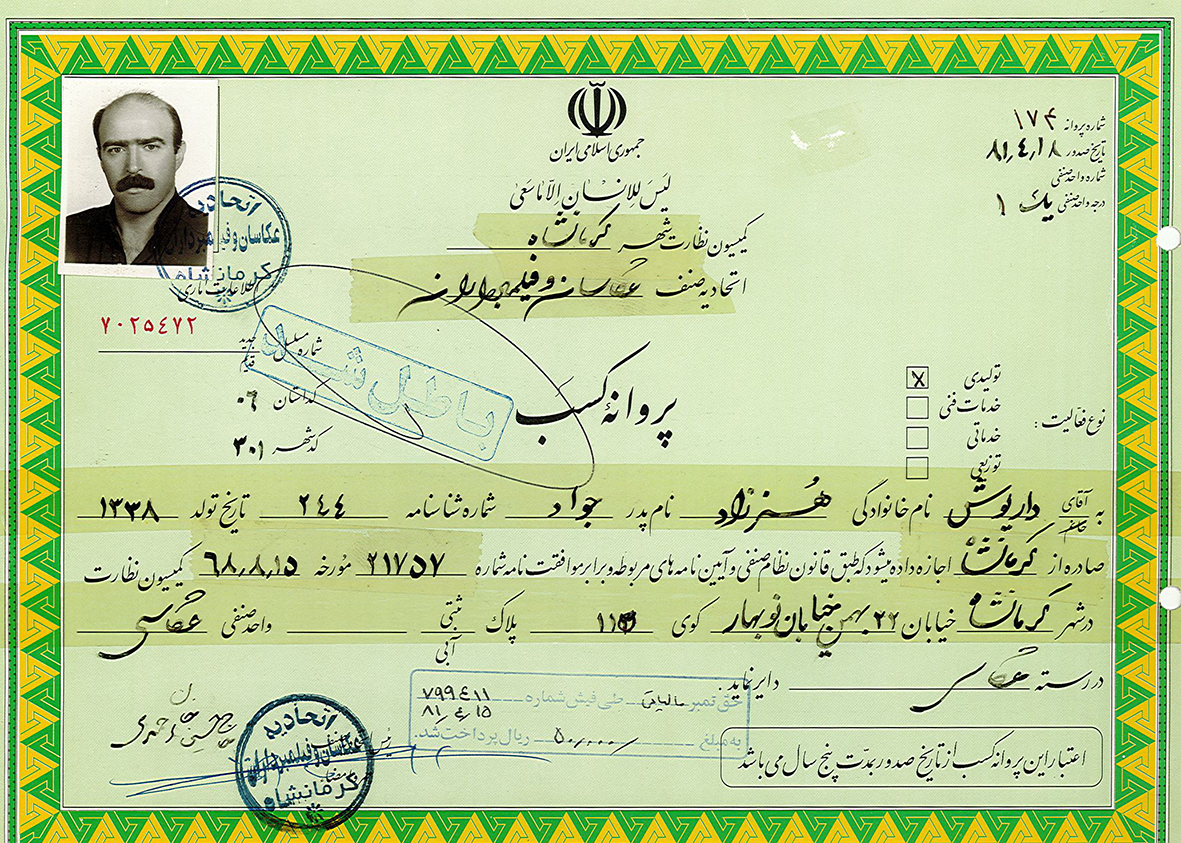 جمهوری اسلامی ایران
شماره پروانه ۱۷۴
تاریخ صدور ۸۱٫۴٫۱۸
شماره واحد صنفی
درجه واحد صنفی یک ۱
لَیسَ لِلاِنسانِ اِلّا ماسَعیٰ
کمیسیون نظارت شهر کرمانشاه
اتحادیه صنف عکاسان و فیلمبرداران
اتحادیه
عکاسان و فیلمبرداران
کرمانشاه
۷۰۲۵۴۷۲
شماره مسلسل جدید
قدیم
کد استان ۰۶
کد شهر ۳۰۱
باطل شد
پروانهٔ کسب
نوع فعالیت :
تولیدی X
خدمات فنی
خدماتی
توزیعی
به آقای داریوش نام خانوادگی هنرزاد نام پدر جواد شماره شناسنامه ۲۴۴ تاریخ تولد ۱۳۳۸
خانم
صادره از کرمانشاه اجازه داده میشود که طبق قانون نظام صنفی و آیین نامه های مربوطه و برابر موافقت نامه شماره ۲۱۷۵۷ مورخه ۶۸٫۸٫۱۵ کمیسیون نظارت
در شهر کرمانشاه خیابان ۲۲ بهمن خیابان نوبهار کوی پلاک ثبتی واحد صنفی عکاسی
آبی
در رسته عکاسی دایر نماید.
حق تمبر مالیاتی طی فیش شماره ۷۹۹۴۱۱
۸۱٫۴٫۱۵
به مبلغ ۵۰٫۰۰۰ ریال پرداخت شد.
اعتبار این پروانه کسب از تاریخ صدور بمدت پنج سال می باشد
اتحادیه
عکاسان و فیلمبرداران
کرمانشاه